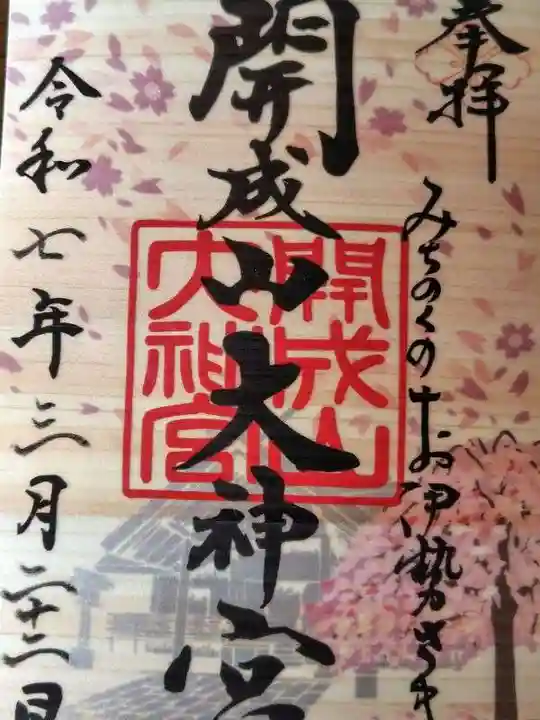 奉拝
みちのくのお伊勢さま
開成山大神宮
開成山
大神宮
令和七年三月二十二日